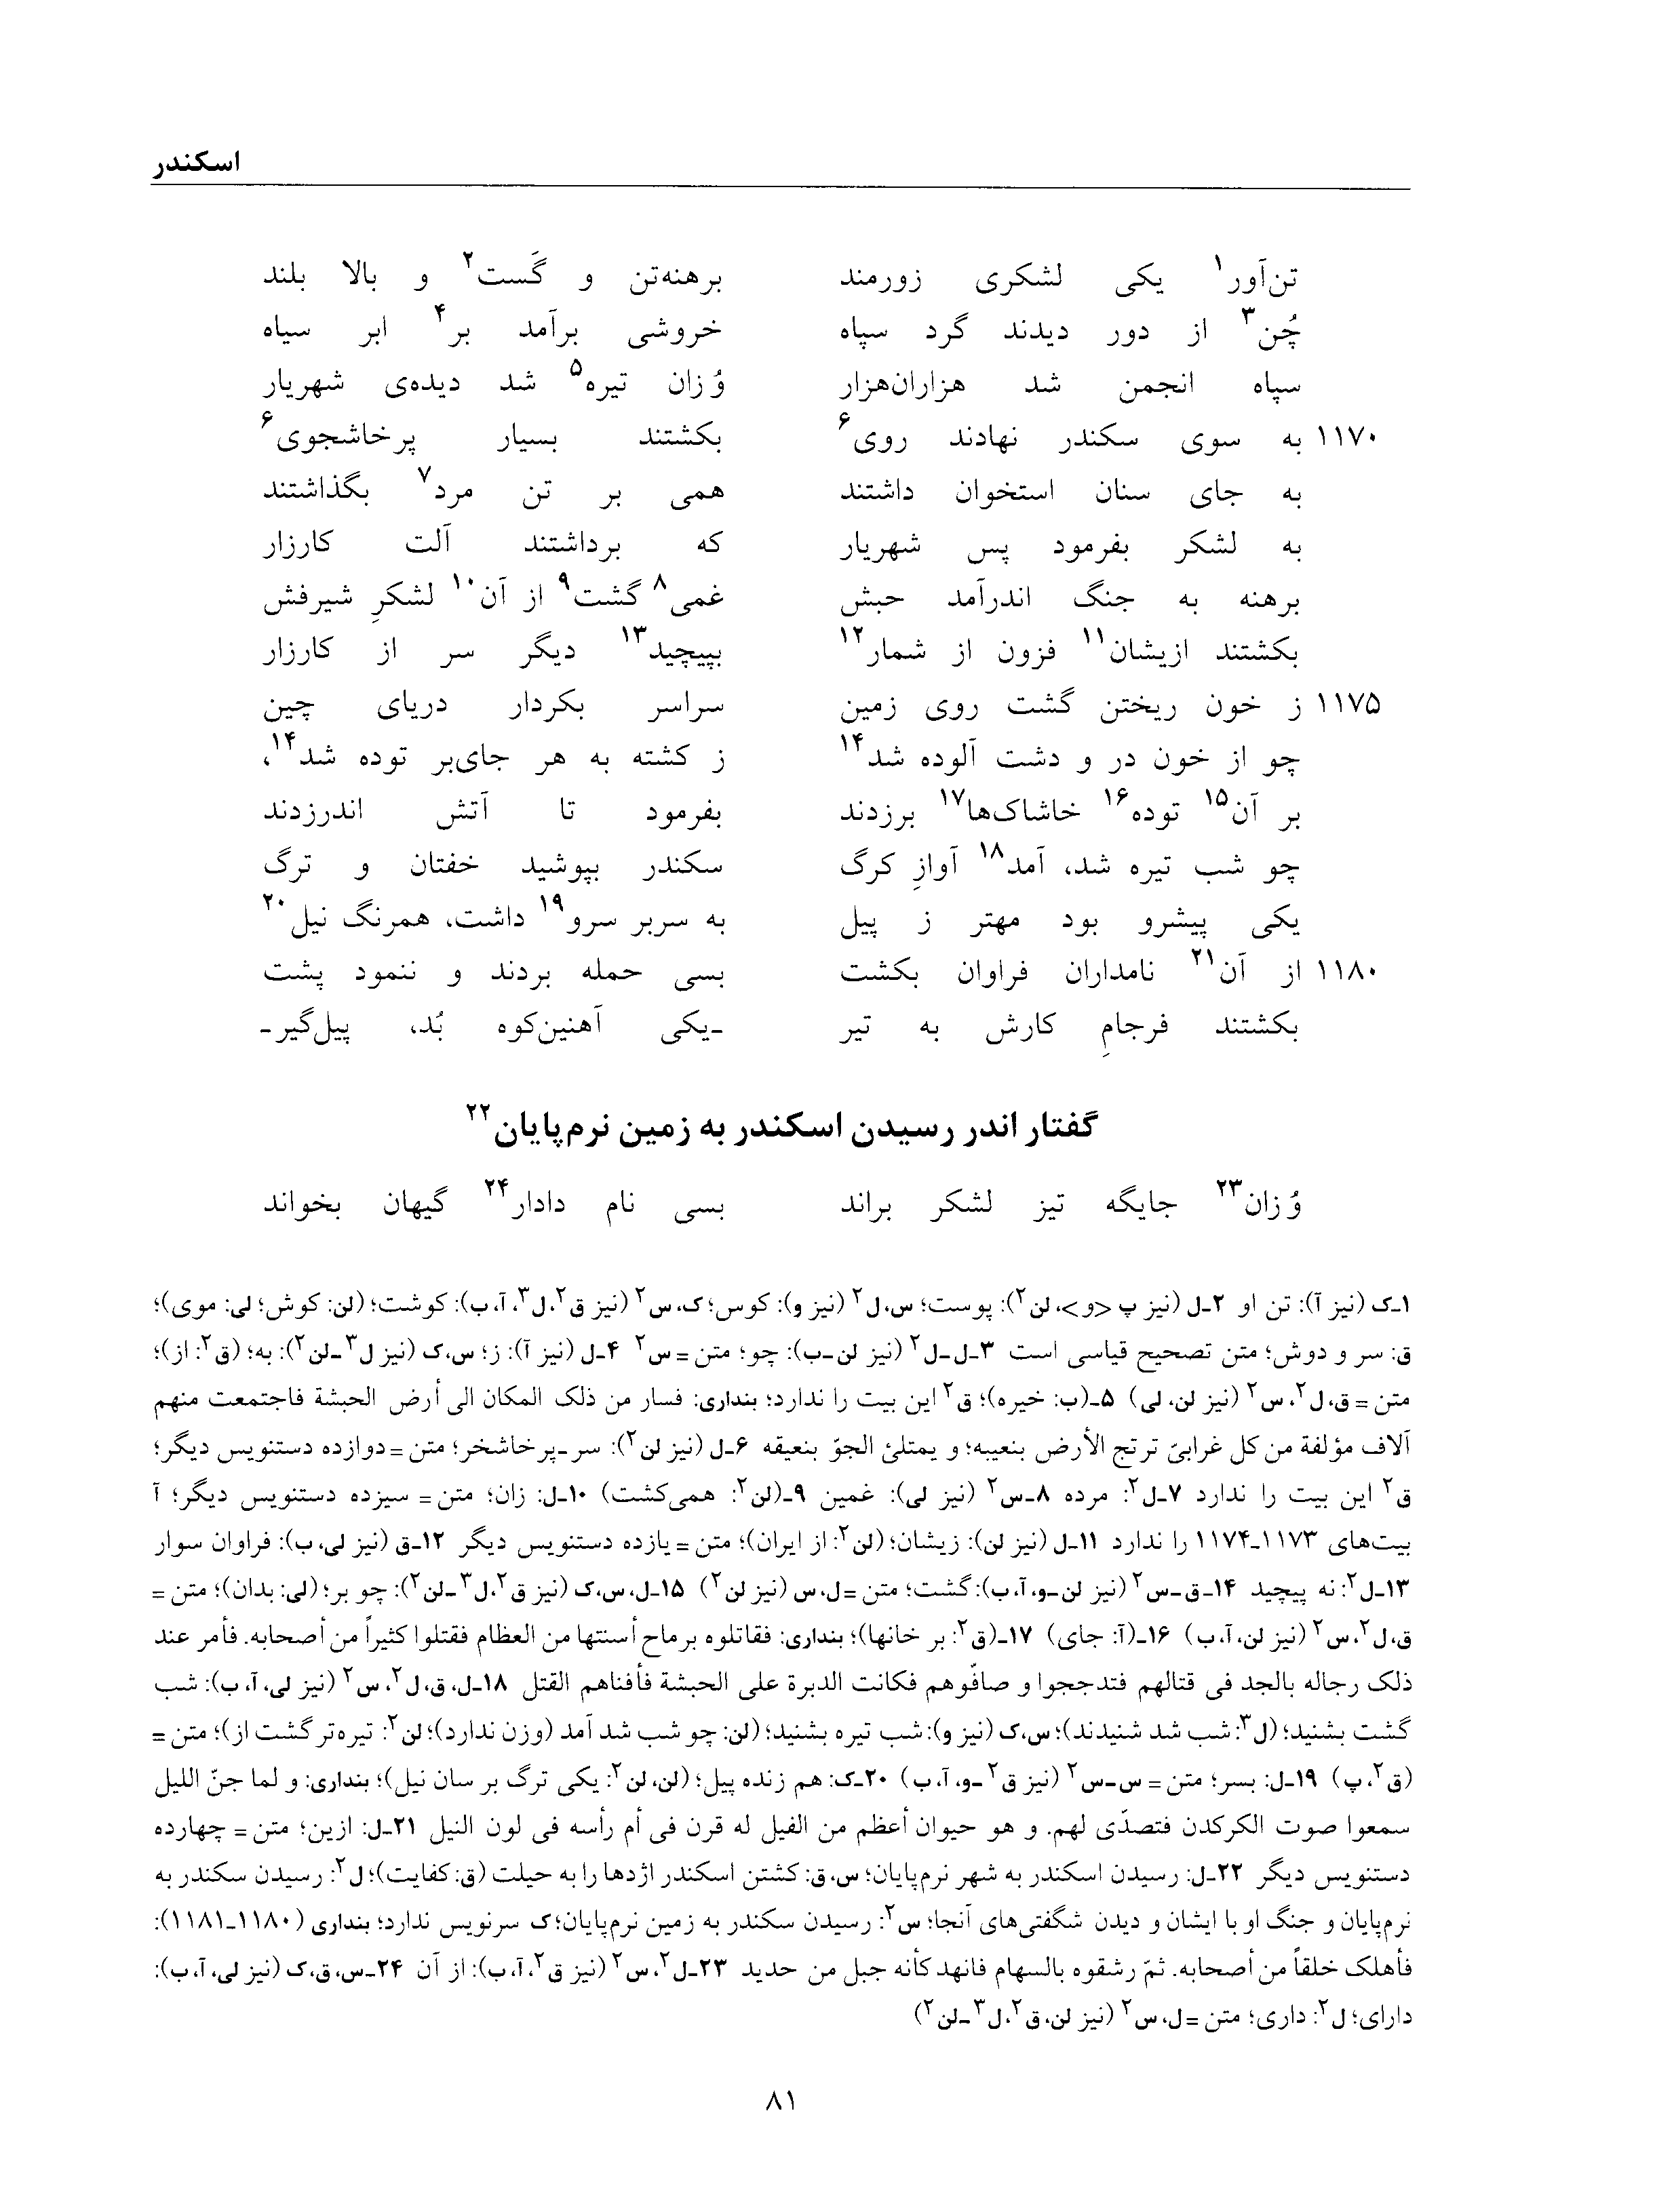 اسکندر
تن‌آور۱ یکی لشکری زورمند برهنه‌تن و گَست۲ و بالا بلند
چُن۳ از دور دیدند گرد سپاه خروشی برآمد بر۴ ابر سیاه
سپاه انجمن شد هزاران‌هزار وُ زان تیره۵ شد دیده‌ی شهریار
۱۱۷۰ به سوی سکندر نهادند روی۶ بکشتند بسیار پرخاشجوی۶
به جای سنان استخوان داشتند همی بر تن مرد۷ بگذاشتند
به لشکر بفرمود پس شهریار که برداشتند آلت کارزار
برهنه به جنگ اندرآمد حبش غمی۸ گشت۹ از آن۱۰ لشکرِ شیرفش
بکشتند ازیشان۱۱ فزون از شمار۱۲ بپیچید۱۳ دیگر سر از کارزار
۱۱۷۵ ز خون ریختن گشت روی زمین سراسر بکردار دریای چین
چو از خون در و دشت آلوده شد۱۴ ز کشته به هر جای‌بر توده شد۱۴،
بر آن۱۵ توده۱۶ خاشاک‌ها۱۷ برزدند بفرمود تا آتش اندرزدند
چو شب تیره شد، آمد۱۸ آوازِ کرگ سکندر بپوشید خفتان و ترگ
یکی پیشرو بود مهتر ز پیل به سربر سرو۱۹ داشت، همرنگ نیل۲۰
۱۱۸۰ از آن۲۱ نامداران فراوان بکشت بسی حمله بردند و ننمود پشت
بکشتند فرجامِ کارش به تیر ـیکی آهنین‌کوه بُد، پیل‌گیرـ
گفتار اندر رسیدن اسکندر به زمین نرم‌پایان۲۲
وُ زان۲۳ جایگه تیز لشکر براند بسی نام دادار۲۴ گیهان بخواند
۱ـک (نیز آ): تن او ۲ـل (نیز پ <و>، لن۲): پوست؛ س، ل۲ (نیز و): کوس؛ ک، س۲ (نیز ق۲، ل۳، آ، ب): کوشت؛ (لن: کوش؛ لی: موی)؛
ق: سر و دوش؛ متن تصحیح قیاسی است ۳ـل‌ـل۲ (نیز لن‌ـب): چو؛ متن = س۲ ۴ـل (نیز آ): ز؛ س، ک (نیز ل۳ـلن۲): به؛ (ق۲: از)؛
متن = ق، ل۲، س۲ (نیز لن، لی) ۵ـ(ب: خیره)؛ ق۲ این بیت را ندارد؛ بنداری: فسار من ذلک المکان الی أرض الحبشة فاجتمعت منهم
آلاف مؤلفة من کل غرابیّ ترتج الأرض بنعیبه؛ و یمتلئ الجوّ بنعیقه ۶ـل (نیز لن۲): سرـپرخاشخر؛ متن = دوازده دستنویس دیگر؛
ق۲ این بیت را ندارد ۷ـل۲: مرده ۸ـس۲ (نیز لی): غمین ۹ـ(لن۲: همی‌کشت) ۱۰ـل: زان؛ متن = سیزده دستنویس دیگر؛ آ
بیت‌های ۱۱۷۳ـ۱۱۷۴ را ندارد ۱۱ـل (نیز لن): زیشان؛ (لن۲: از ایران)؛ متن = یازده دستنویس دیگر ۱۲ـق (نیز لی، ب): فراوان سوار
۱۳ـل۲: نه پیچید ۱۴ـق‌ـس۲ (نیز لن‌ـو، آ، ب): گشت؛ متن = ل، س (نیز لن۲) ۱۵ـل، س، ک (نیز ق۲، ل۳ـلن۲): چو بر؛ (لی: بدان)؛ متن =
ق، ل۲، س۲ (نیز لن، آ، ب) ۱۶ـ(آ: جای) ۱۷ـ(ق۲: بر خانها)؛ بنداری: فقاتلوه برماح أسنتها من العظام فقتلوا کثیراً من أصحابه. فأمر عند
ذلک رجاله بالجد فی قتالهم فتدججوا و صافّوهم فکانت الدبرة علی الحبشة فأفناهم القتل ۱۸ـل، ق، ل۲، س۲ (نیز لی، آ، ب): شب
گشت بشنید؛ (ل۳: شب شد شنیدند)؛ س، ک (نیز و): شب تیره بشنید؛ (لن: چو شب شد آمد (وزن ندارد)؛ لن۲: تیره‌تر گشت از)؛ متن =
(ق۲، پ) ۱۹ـل: بسر؛ متن = س‌ـس۲ (نیز ق۲ـو، آ، ب) ۲۰ـک: هم زنده پیل؛ (لن، لن۲: یکی ترگ بر سان نیل)؛ بنداری: و لما جنّ اللیل
سمعوا صوت الکرکدن فتصدّی لهم. و هو حیوان أعظم من الفیل له قرن فی أم رأسه فی لون النیل ۲۱ـل: ازین؛ متن = چهارده
دستنویس دیگر ۲۲ـل: رسیدن اسکندر به شهر نرم‌پایان؛ س، ق: کشتن اسکندر اژدها را به حیلت (ق: کفایت)؛ ل۲: رسیدن سکندر به
نرم‌پایان و جنگ او با ایشان و دیدن شگفتی‌های آنجا؛ س۲: رسیدن سکندر به زمین نرم‌پایان؛ ک سرنویس ندارد؛ بنداری (۱۱۸۰ـ۱۱۸۱):
فأهلک خلقاً من أصحابه. ثمّ رشقوه بالسهام فانهد کأنه جبل من حدید ۲۳ـل۲، س۲ (نیز ق۲، آ، ب): از آن ۲۴ـس، ق، ک (نیز لی، آ، ب):
دارای؛ ل۲: داری؛ متن = ل، س۲ (نیز لن، ق۲، ل۳ـلن۲)
۸۱